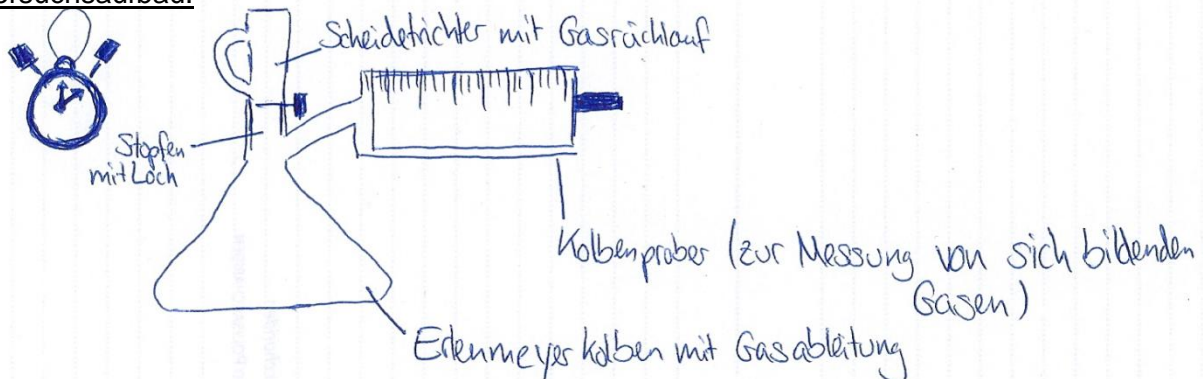 Scheidetrichter mit Gasrücklauf
Stopfen
mit Loch
Kolbenprober (zur Messung von sich bildenden
Gasen)
Erlenmeyerkolben mit Gasableitung